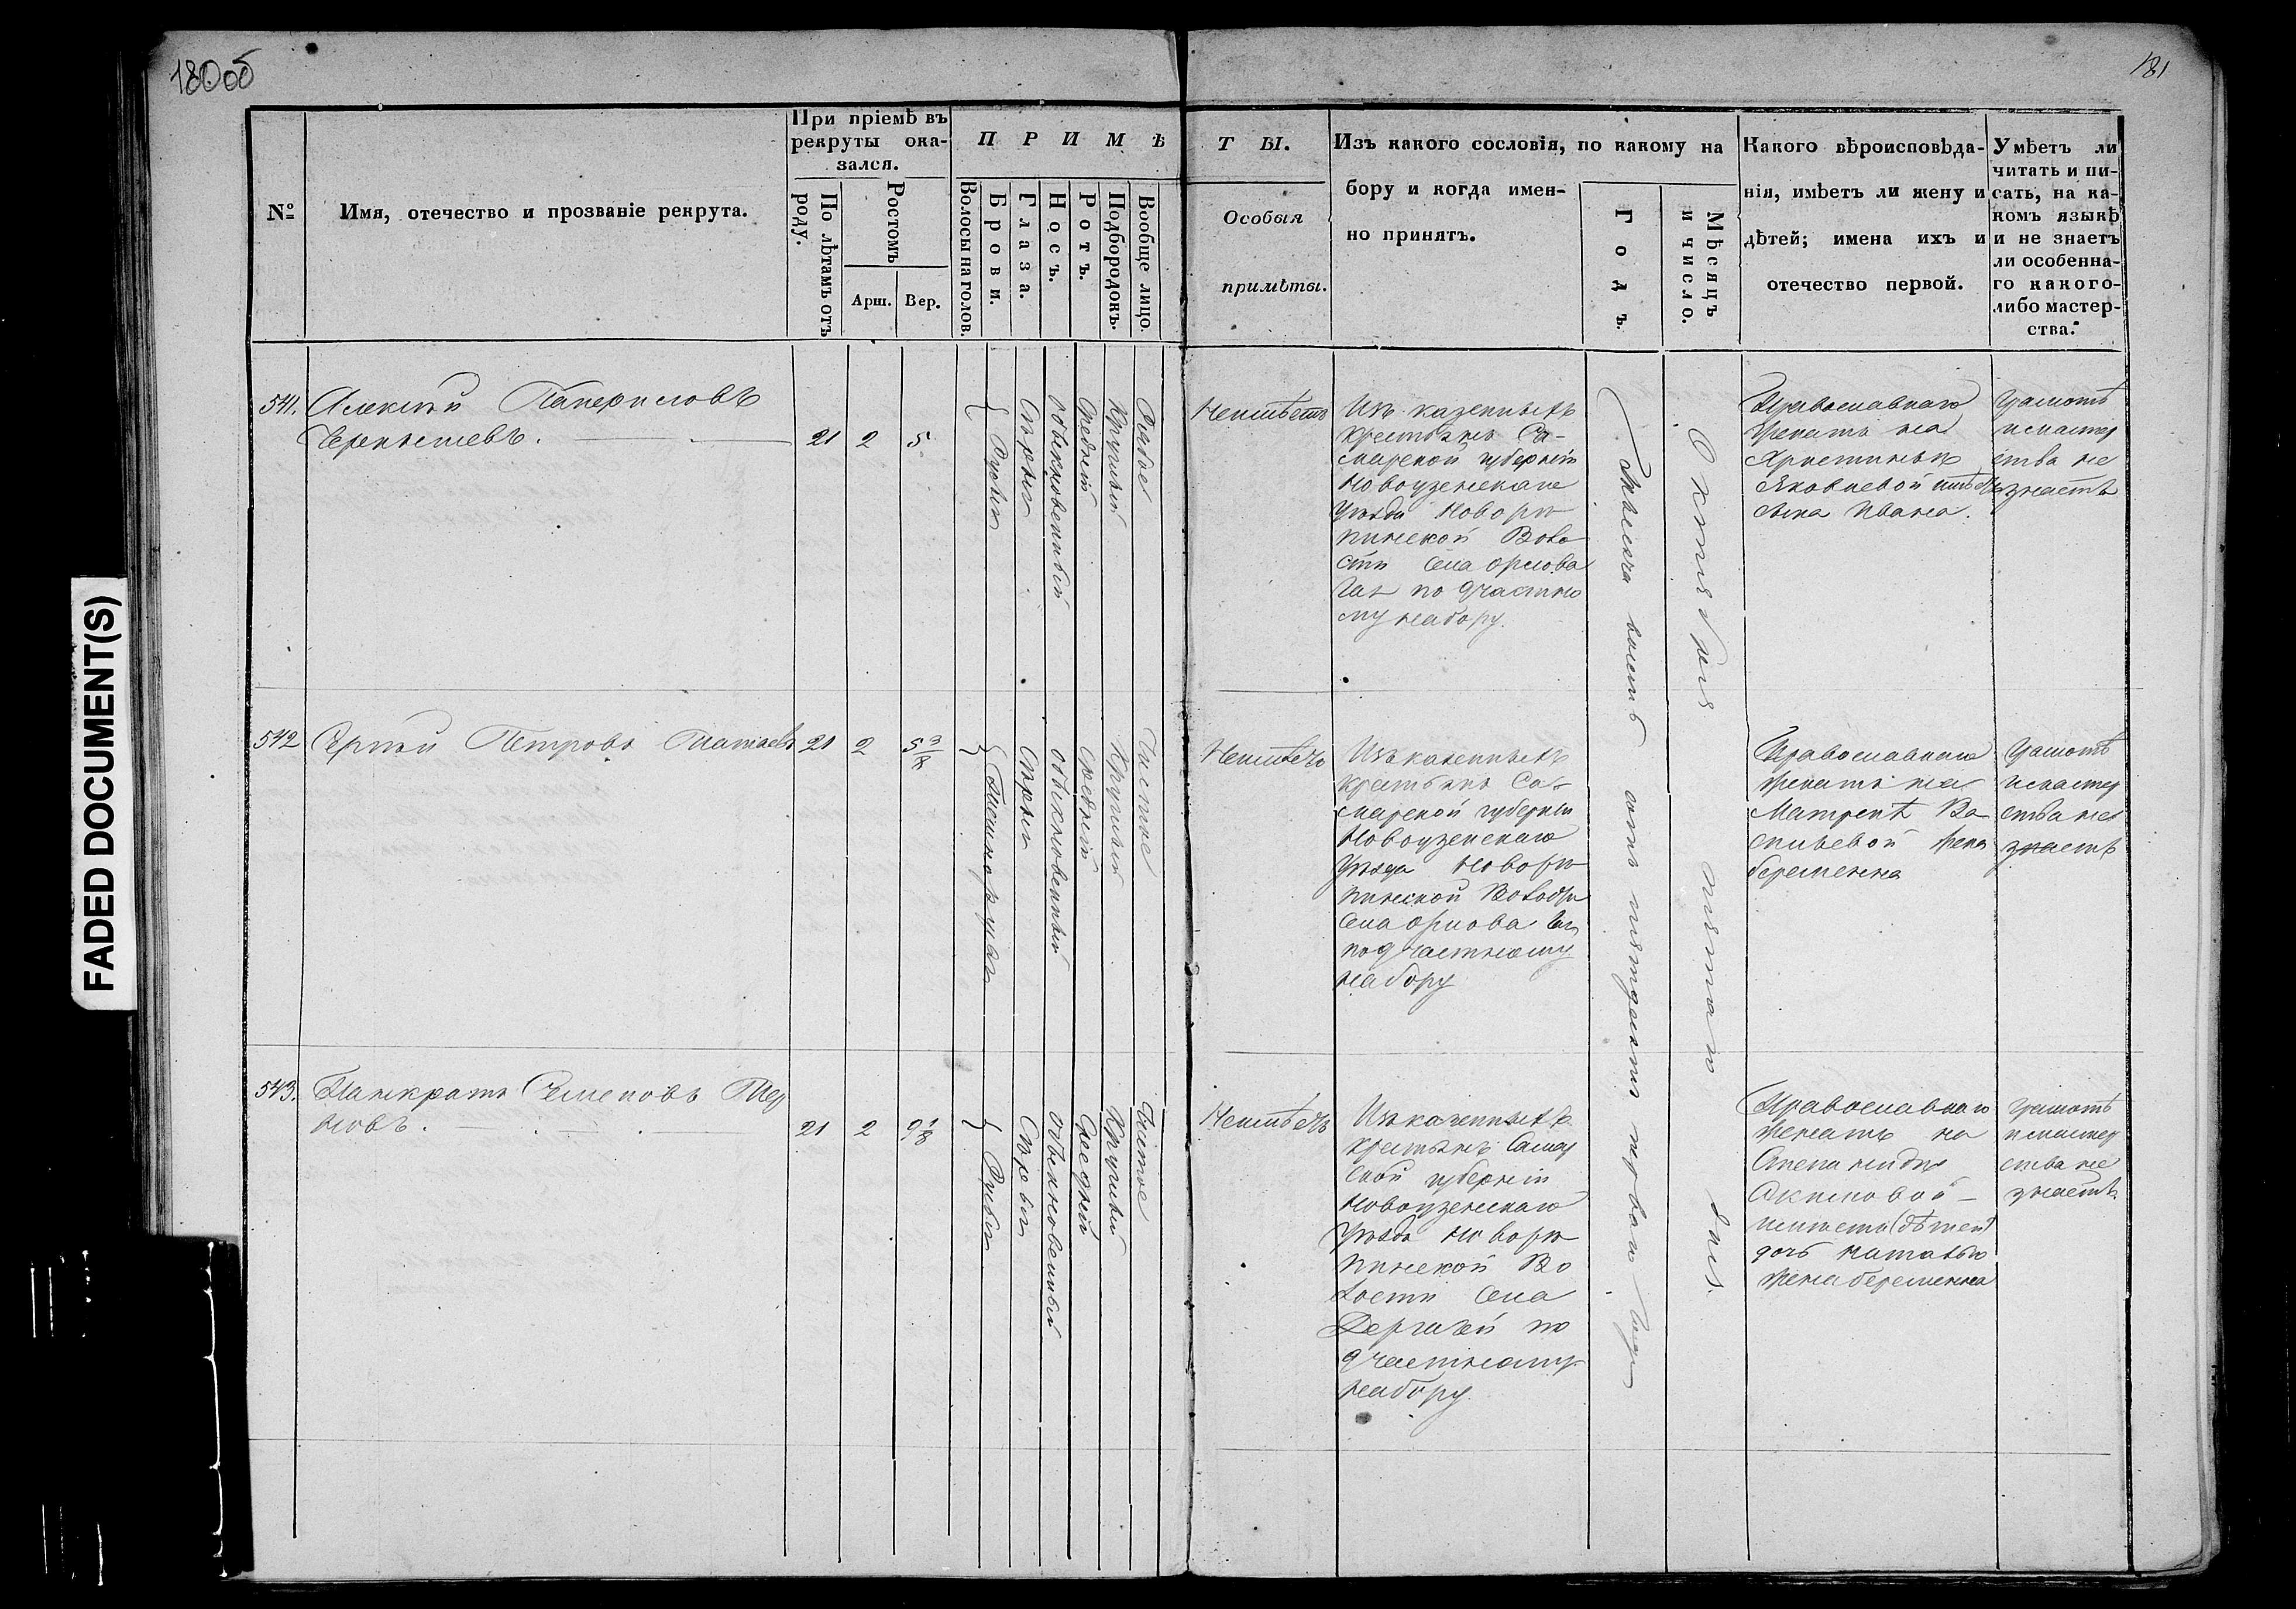 180об
181
FADED DOCUMENT(S)
№
Имя, отечество и прозваніе рекрута.
При пріемѣ въ
рекруты ока-
зался.
По лѣтамъ отъ
роду.
Ростомъ
Арш. Вер.
ПРИМѢ
Волосы на голов.
Брови.
Глаза.
Носъ.
Ротъ.
Подбородокъ.
Вообще лицо.
ТЫ.
Особыя
примѣты.
Изъ какого сословія, по какому на
бору и когда имен-
но принятъ.
Годъ.
Мѣсяцъ
и число.
Какого вѣроисповѣда-
нія, имѣетъ ли жену и
дѣтей; имена ихъ и
отечество первой.
Умѣетъ ли
читать и пи-
сать, на ка-
комъ языкѣ
и не знаетъ
ли особенна-
го какого-
либо мастер-
ства.
541. Алексѣй
21 2 5
Русыи
Сѣрыи
Обыкновенный
Средній
Круглый
Рябое
Неимѣетъ
Изъ казенныхъ
крестьянъ Са-
марской губерніи
Новоузенскаго
уѣзда Новоре
пинской Воло
сти села Орлова
Гая по Участко
му набору.
Тысяча восемь сотъ пятдесятъ перваго года
Октября пятаго дня.
Православнаго
женатъ на
Христиньи
Яковлевой имѣетъ
сына Ивана.
Грамотѣ
и мастер
ства не
знаетъ
542 Сергѣй Петровъ
21 2 5 3/8
Темнорусыи
Сѣрыи
Обыкновенный
Средній
Круглый
Чистое
Неимѣетъ
Изъ казенныхъ
крестьянъ Са-
марской губерніи
Новоузенскаго
уѣзда Новоре
пинской Волости
села Орлова Гая
по Участкому
набору
Православнаго
женатъ на
Матренѣ Ва
сильевой жена
беременна
Грамотѣ
и мастер
ства не
знаетъ
543. Панкратъ Семеновъ
новъ.
21 2 9 1/8
Русыи
Сѣрыи
Обыкновенный
Средній
Круглый
Чистое
Неимѣетъ
Изъ казенныхъ
крестьянъ Самар
ской губерніи
Новоузенскаго
уѣзда Новоре
пинской Во
лости села
Дергачей по
Участкому
набору.
Православнаго
женатъ на
Степанидѣ
Акимовой -
имѣетъ дѣтей
дочь Наталью
жена беременна
Грамотѣ
и мастер
ства не
знаетъ